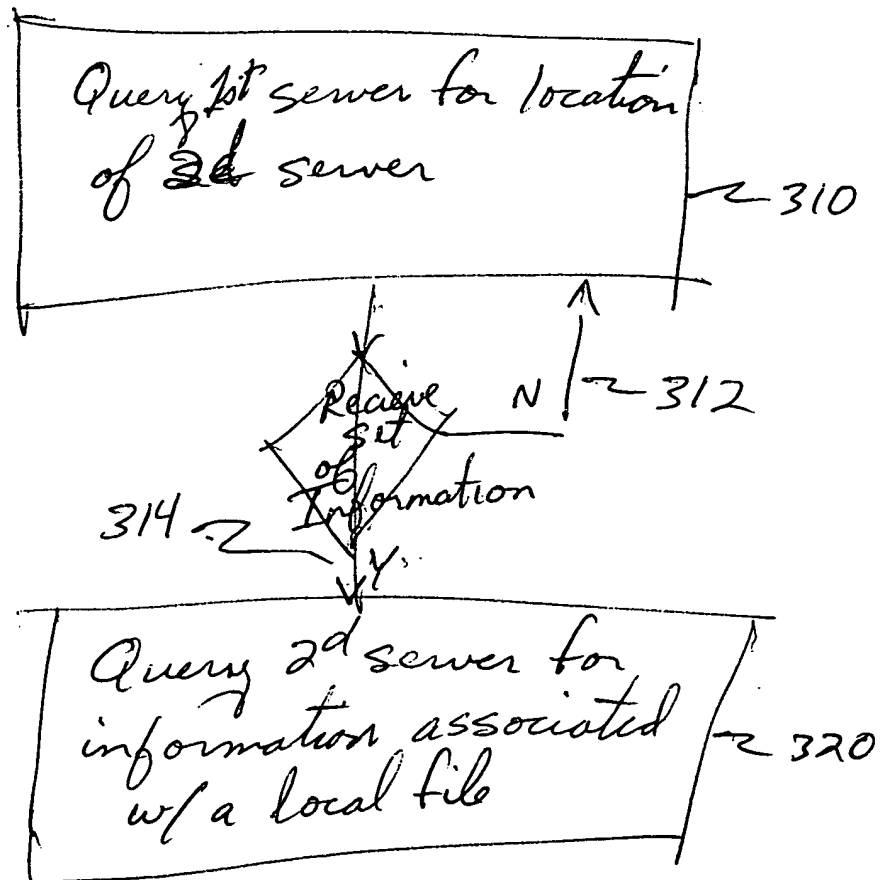 Query 1st server for location
of 2d server
310
Recieve
set
of
Information
N
312
314
Y
Query 2d server for
information associated
w/ a local file
320